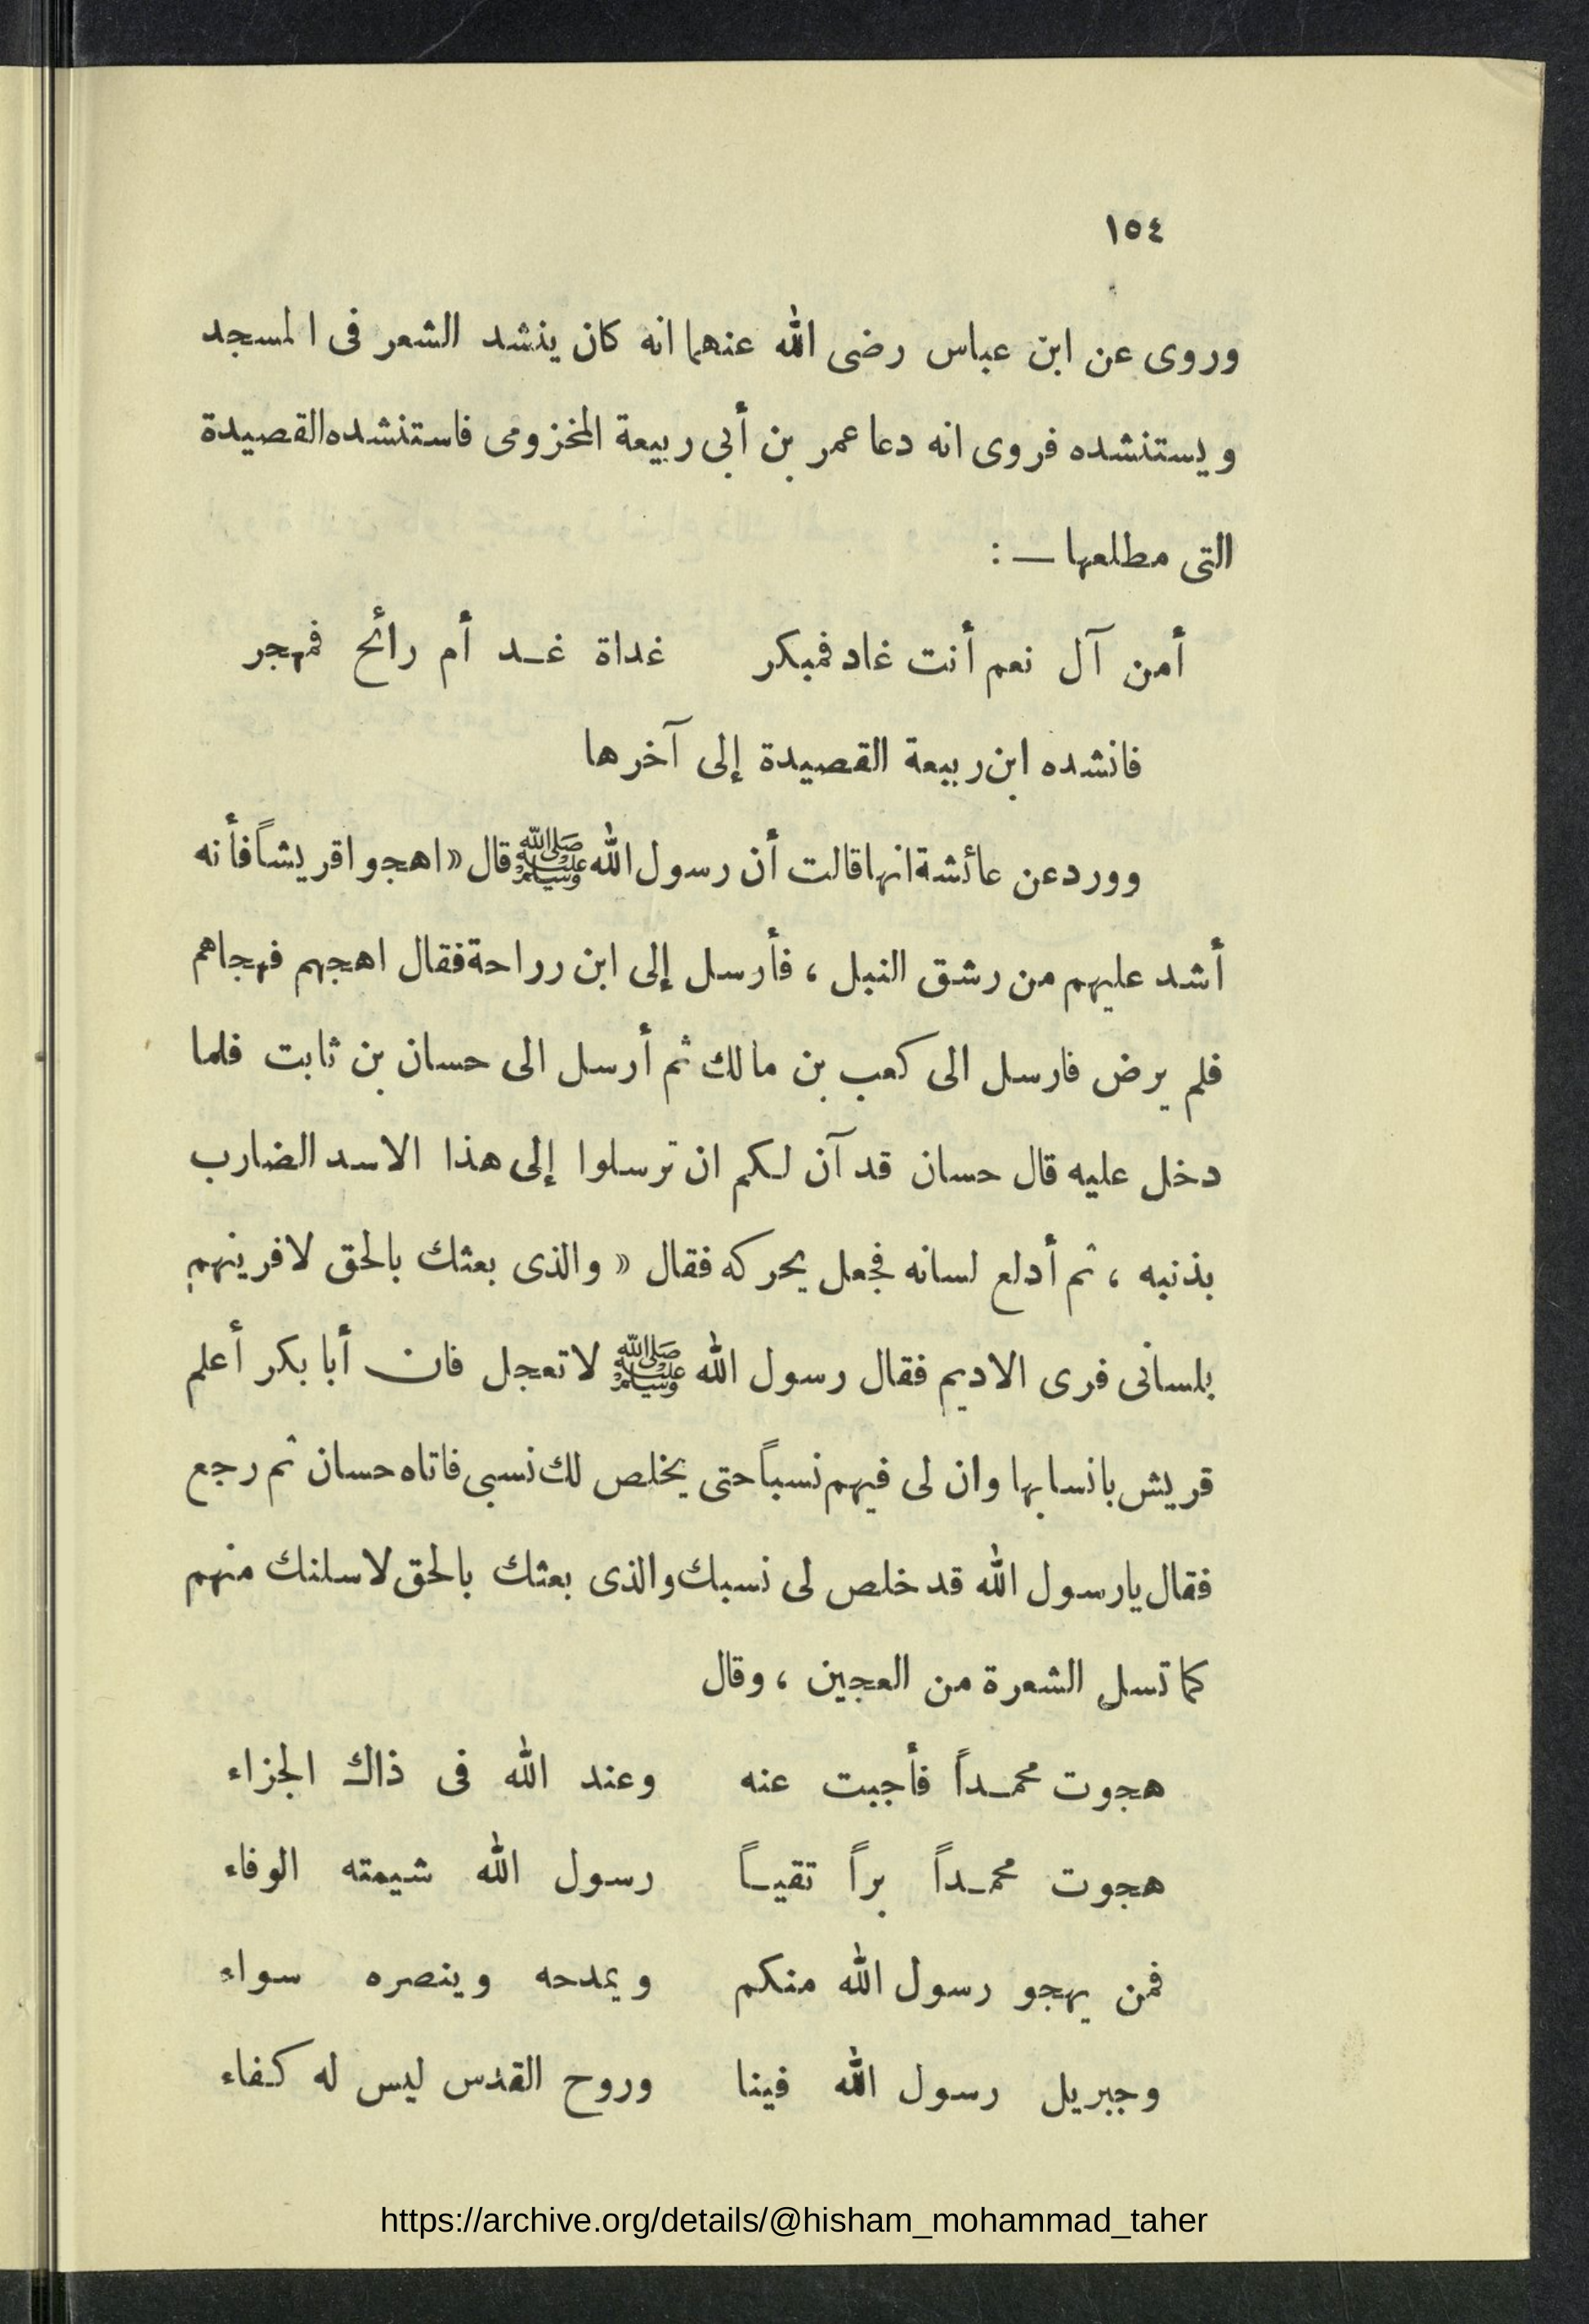 ١٥٤
وروى عن ابن عباس رضى الله عنهما انه كان ينشد الشعر فى المسجد
ويستنشده فروى انه دعا عمر بن أبى ربيعة المخزومى فاستنشده القصيدة
التى مطلعها ـــ :
أمن آل نعم أنت غاد فمبكر غداة غـد أم رائح فمهجر
فانشده ابن ربيعة القصيدة إلى آخرها
وورد عن عائشة انها قالت أن رسول الله ﷺ قال « اهجوا قريشاً فأنه
أشد عليهم من رشق النبل ، فأرسل إلى ابن رواحة فقال اهجهم فهجاهم
فلم يرض فارسل الى كعب بن مالك ثم أرسل الى حسان بن ثابت فلما
دخل عليه قال حسان قد آن لكم ان ترسلوا إلى هذا الاسد الضارب
بذنبه ، ثم أدلع لسانه فجعل يحركه فقال « والذى بعثك بالحق لافرينهم
بلسانى فرى الاديم فقال رسول الله ﷺ لا تعجل فان أبا بكر أعلم
قريش بانسابها وان لى فيهم نسباً حتى يخلص لك نسبى فاتاه حسان ثم رجع
فقال يارسول الله قد خلص لى نسبك والذى بعثك بالحق لاسلنك منهم
كما تسل الشعرة من العجين ، وقال
هجوت محمـداً فأجبت عنه وعند الله فى ذاك الجزاء
هجوت محمـداً براً تقيـاً رسول الله شيمته الوفاء
فمن يهجو رسول الله منكم ويمدحه وينصره سواء
وجبريل رسول الله فينا وروح القدس ليس له كفاء
https://archive.org/details/@hisham_mohammad_taher